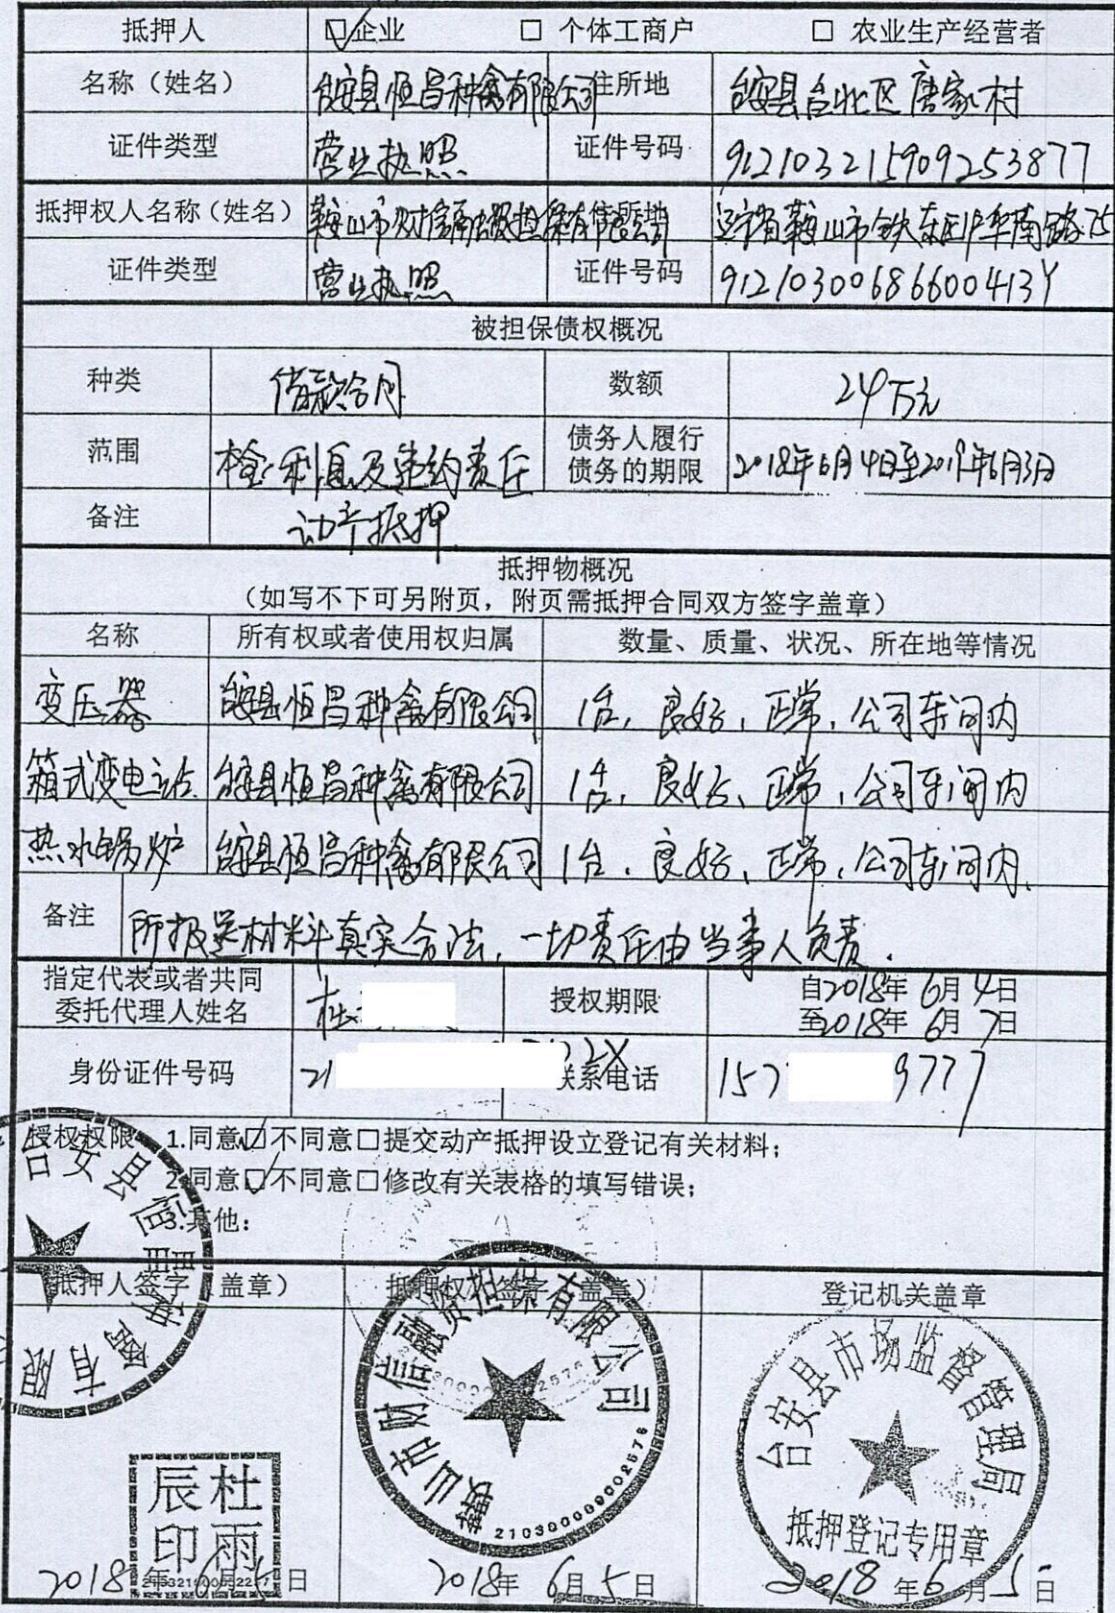 抵押人 ☑企业 □ 个体工商户 □ 农业生产经营者
名称（姓名） 台安县恒昌种禽有限公司 住所地 台安县台北区唐家村
证件类型 营业执照 证件号码 912103211590925387 7
抵押权人名称（姓名） 鞍山市财信融资担保有限公司 住所地 辽宁省鞍山市铁东区 华南路75
证件类型 营业执照 证件号码 91210300686600413Y
被担保债权概况
种类 借款合同 数额 24万元
范围 本金、利息及违约责任 债务人履行债务的期限 2018年6月4日至2019年6月3日
备注 动产抵押
抵押物概况
（如写不下可另附页，附页需抵押合同双方签字盖章）
名称 所有权或者使用权归属 数量、质量、状况、所在地等情况
变压器 台安县恒昌种禽有限公司 1台，良好，正常，公司车间内
箱式变电站 台安县恒昌种禽有限公司 1台，良好、正常，公司车间内
热水锅炉 台安县恒昌种禽有限公司 1台．良好、正常，公司车间内．
备注 所报送材料真实合法，一切责任由当事人负责．
指定代表或者共同委托代理人姓名 杜 授权期限 自2018年6月4日
至2018年6月7日
身份证件号码 21 2X 联系电话 157 9777
授权权限 1.同意☑不同意□提交动产抵押设立登记有关材料；
2.同意☑不同意□修改有关表格的填写错误；
3.其他：
抵押人签字（盖章） 抵押权人签字（盖章） 登记机关盖章
台安县恒昌种禽有限
鞍山市财信融资担保有限公司
2103000009002576
台安县市场监督管理局
抵押登记专用章
杜雨辰印
2018年6月 日 2018年6月5日 2018年6月5日